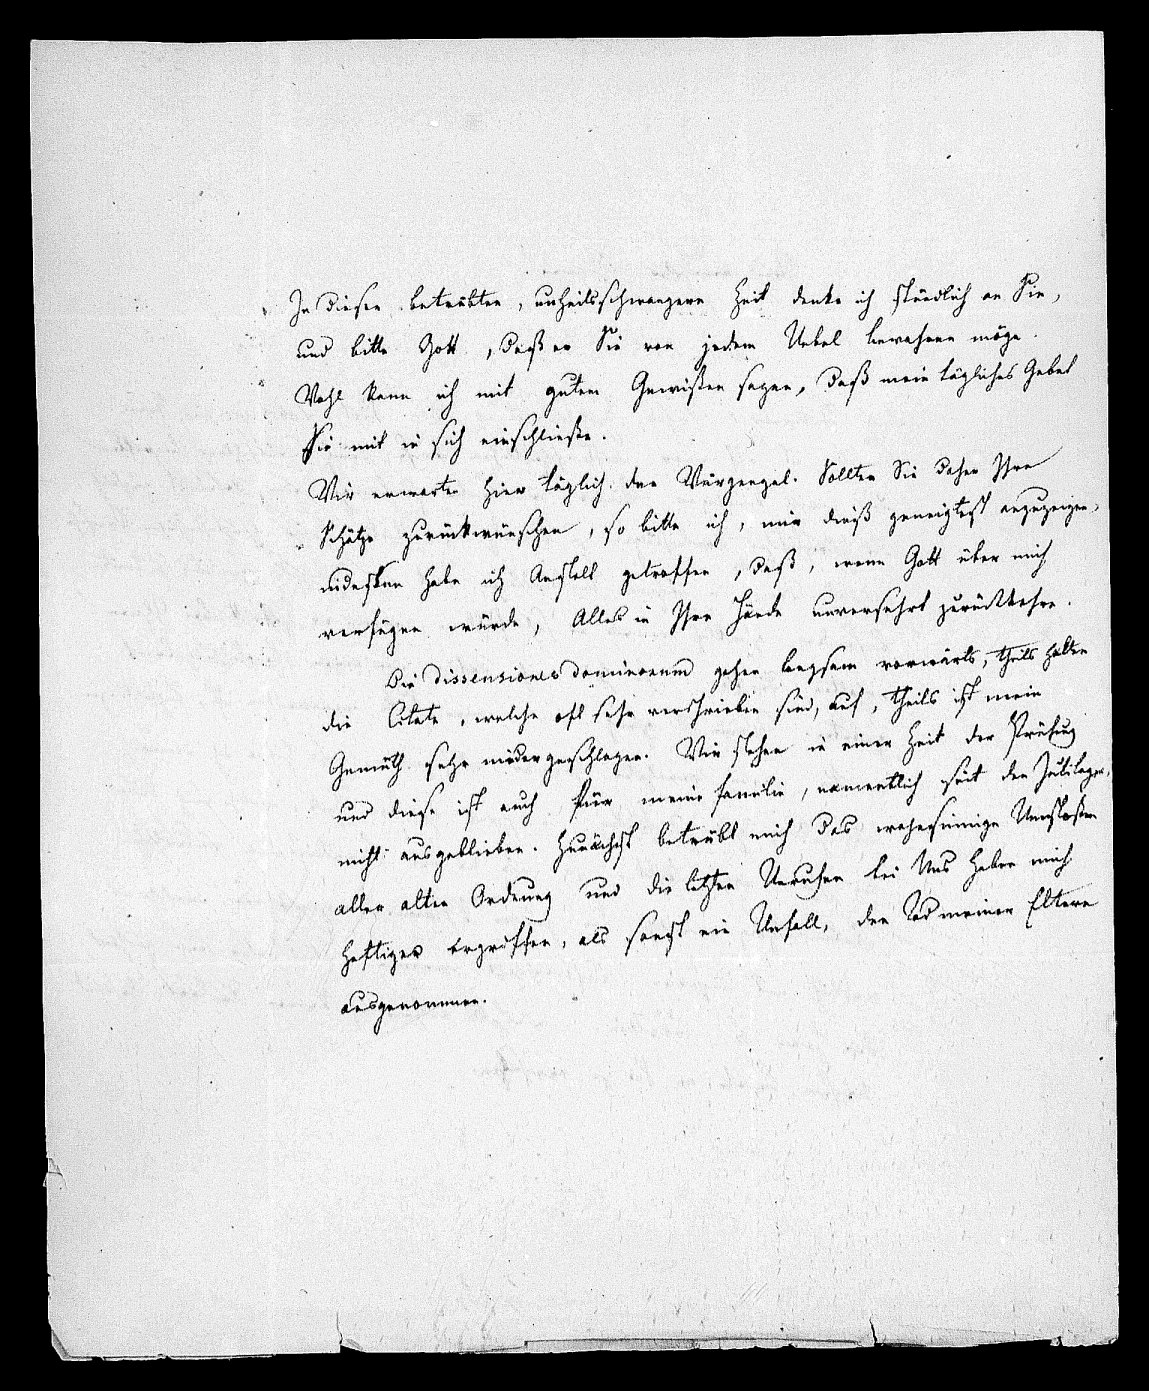 In dieser betrübten, unheilsschwangern Zeit denke ich stündlich an Sie,
und bitte Gott, daß er Sie von jedem Uebel bewahren möge.
Wohl kann ich mit gutem Gewißen sagen, daß mein tägliches Gebet
Sie mit in sich einschließe.
Wir erwarten hier täglich den Würgengel. Sollten Sie daher Ihre
Schätze zurückwünschen, so bitte ich, mir dieß geneigtest anzuzeigen,
indeßen habe ich Anstalt getroffen, daß, wenn Gott über mich
verfügen würde, Alles in Ihre Hände unversehrt zurückkehre.
Die dissensiones dominorum gehen langsam vorwärts, theils halten
die Citate, welche oft sehr verschrieben sind, auf, theils ist mein
Gemüth sehr niedergeschlagen. Wir stehen in einer Zeit der Prüfung
und diese ist auch für meine Familie, namentlich seit den Julitagen,
nicht ausgeblieben. Zunächst betrübt mich das wahnsinnige Umstoßen
aller alten Ordnung und die letzten Unruhen bei Uns haben mich
heftiger ergriffen, als sonst ein Unfall, den Tod meiner Eltern
ausgenommen.